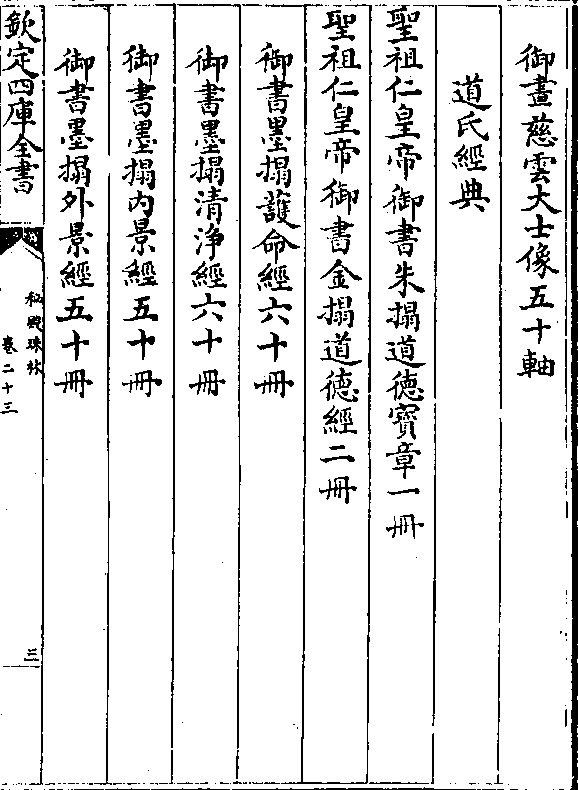 御畫慈雲大士像五十軸
道氏經典
聖祖仁皇帝御書朱搨道德寶章一冊
聖祖仁皇帝御書金搨道德經二冊
御書墨搨護命經六十冊
御書墨搨清净經六十冊
御書墨搨内景經五十冊
御書墨搨外景經五十冊
欽定四庫全書
秘殿珠林
卷二十三
三